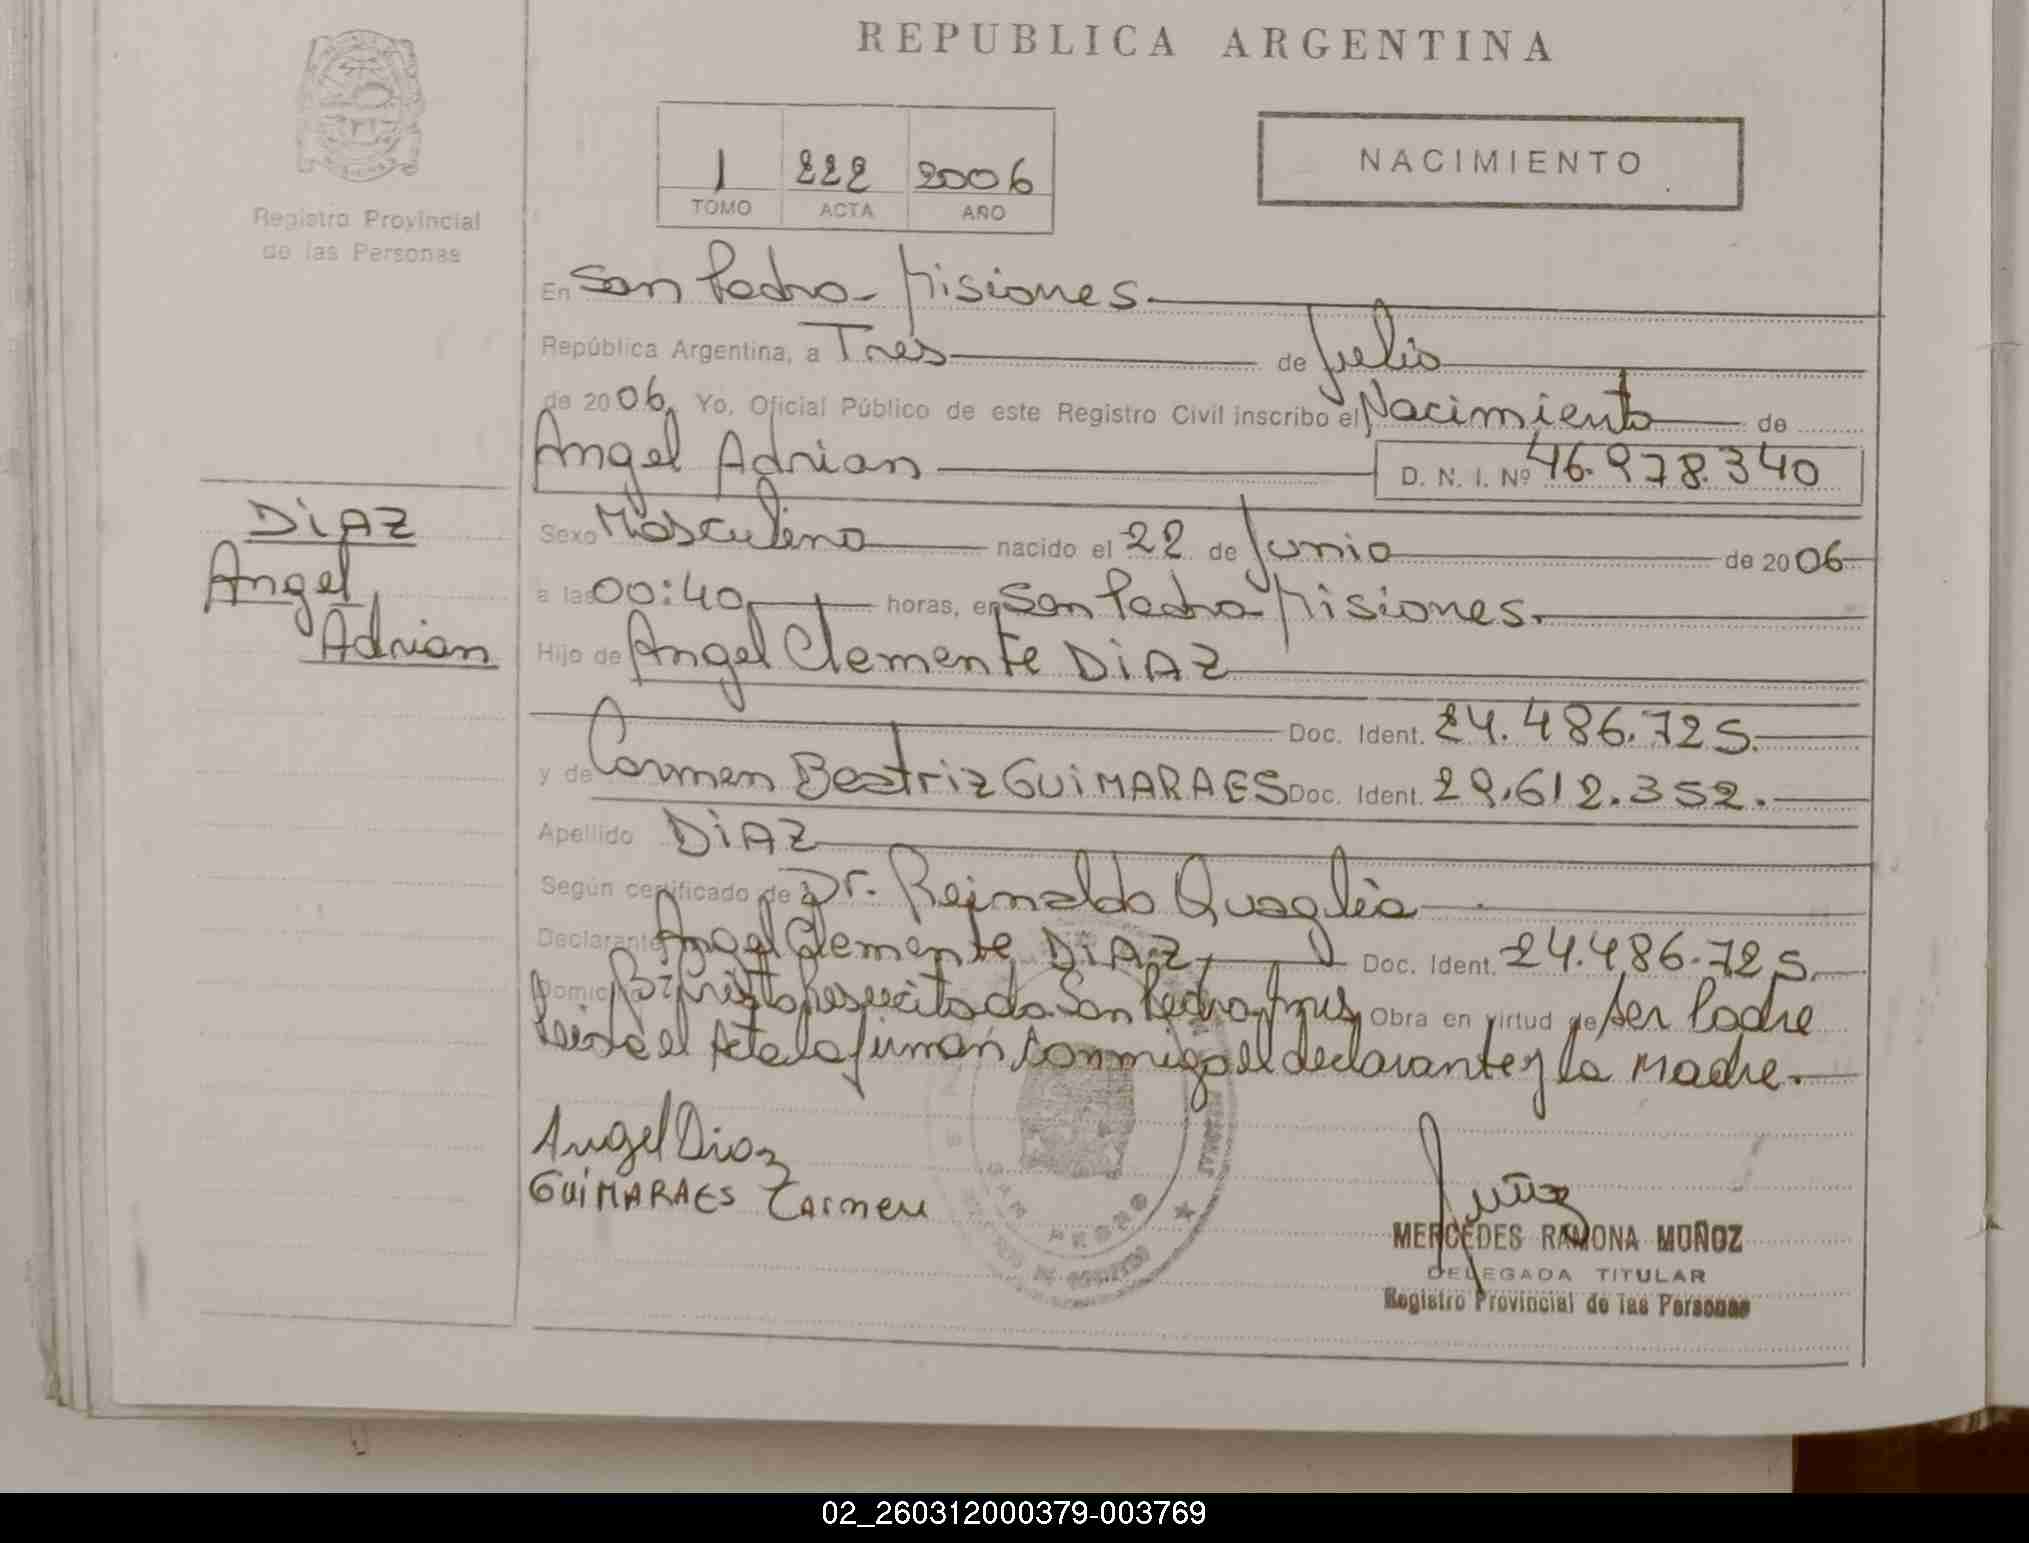 REPUBLICA ARGENTINA
NACIMIENTO
1 222 2006
TOMO ACTA AÑO
Registro Provincial
de las Personas
En San Pedro - Misiones.
República Argentina, a Tres de Julio
de 2006, Yo, Oficial Público de este Registro Civil inscribo el Nacimiento de
Angel Adrian D. N. I. Nº 46.978.340
DiAZ
Angel
Adrian
Sexo Masculino nacido el 22 de Junio de 2006
a las 00:40 horas, en San Pedro - Misiones.
Hijo de Angel Clemente DiAZ
Doc. Ident. 24.486.725.
y de Carmen Beatriz GUiMARAES Doc. Ident. 29.612.352.
Apellido DiAZ
Según certificado de Dr. Reinaldo Quaglia
Declarante Angel Clemente DiAZ, Doc. Ident. 24.486.725.
Domicilio Bº Cristo Resucitado San Pedro, Mnes Obra en virtud de Ser Padre
Leida el Acta la firman conmigo el declarante y la Madre.
Angel Diaz
GUiMARAES Carmen
MERCEDES RAMONA MUÑOZ
DELEGADA TITULAR
Registro Provincial de las Personas
SAN PEDRO
02_260312000379-003769